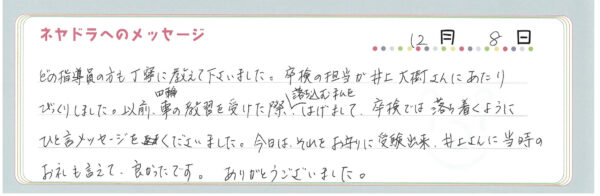 ネヤドラへのメッセージ
12月 8日
どの指導員の方も丁寧に教えて下さいました。卒検の担当が井上大樹さんにあたり
びっくりしました。以前、四輪車の教習を受けた際、落ち込む私をはげまして、卒検では落ち着くように
ひと言メッセージをくださいました。今日は、それをお守りに受験出来、井上さんに当時の
お礼も言えて、良かったです。 ありがとうございました。